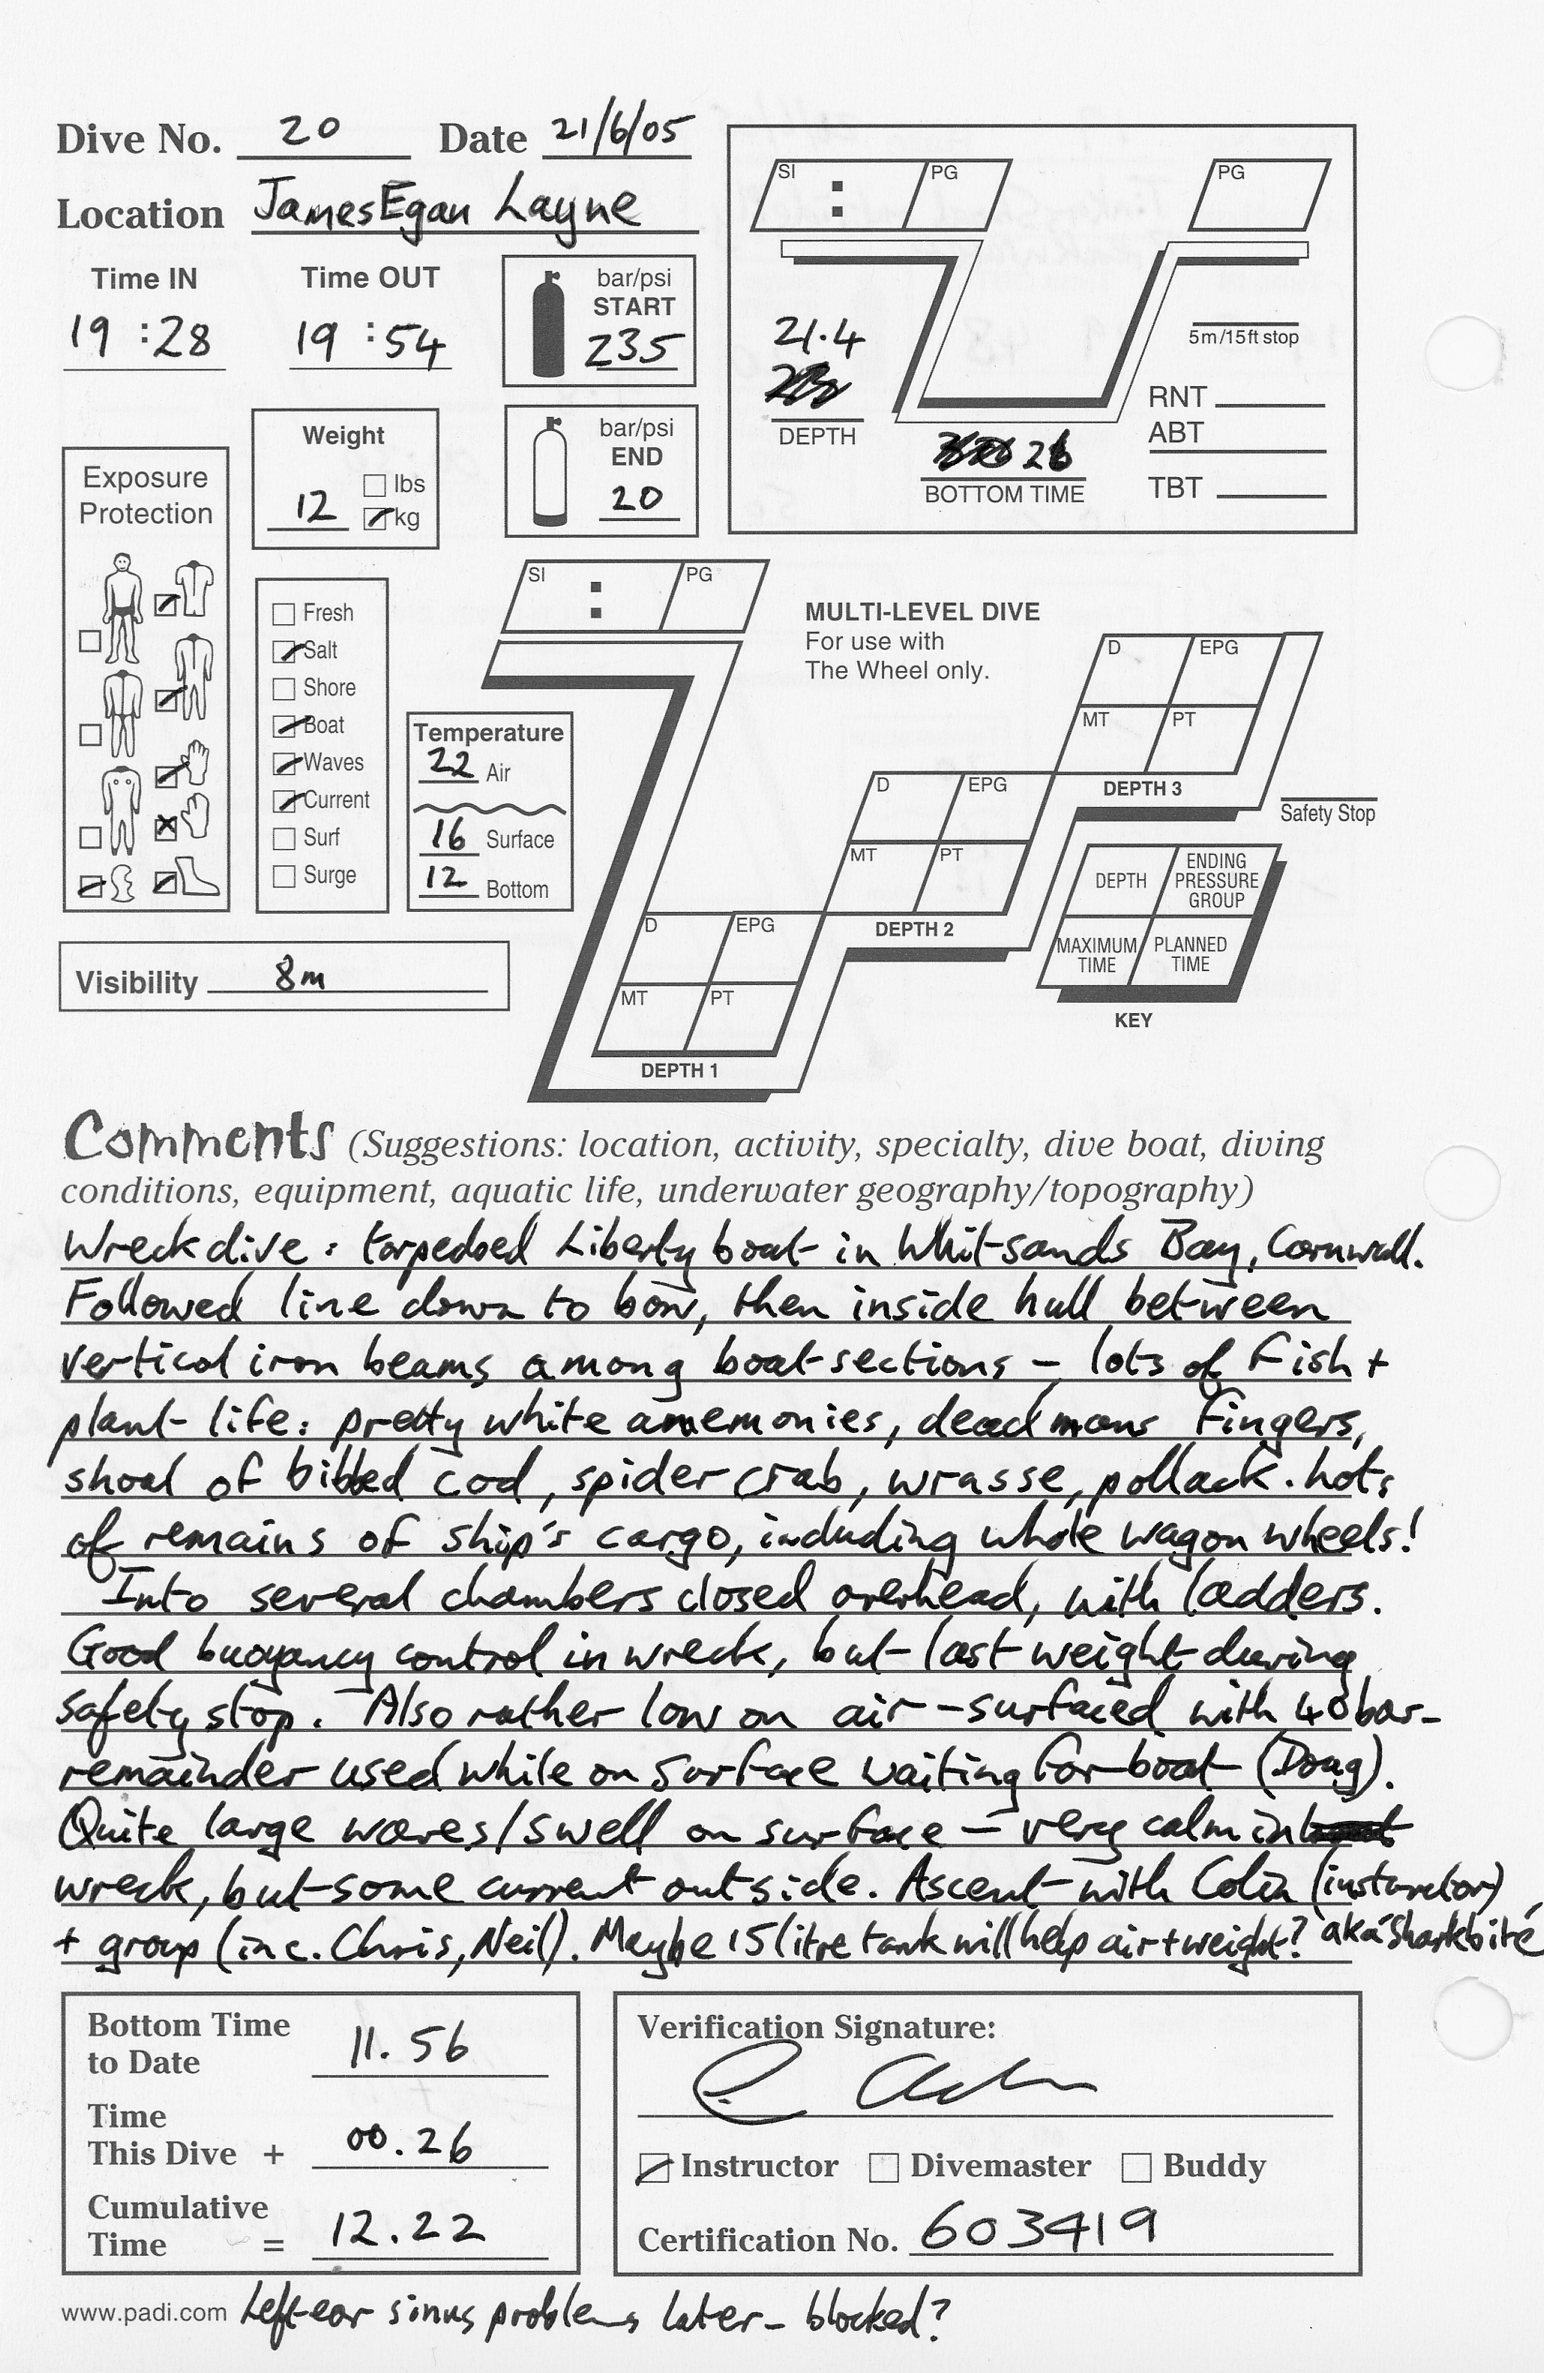 Dive No. 20 Date 21/6/05
Location James Egan Layne
Time IN Time OUT
19:28 19:54
bar/psi
START
235
bar/psi
END
20
Weight
12 lbs
kg
Exposure
Protection
Fresh
Salt
Shore
Boat
Waves
Current
Surf
Surge
Temperature
22 Air
16 Surface
12 Bottom
Visibility 8m
SI : PG
PG
21.4
DEPTH
26
BOTTOM TIME
5m/15ft stop
RNT
ABT
TBT
SI : PG
MULTI-LEVEL DIVE
For use with
The Wheel only.
D EPG
MT PT
DEPTH 3
D EPG
MT PT
DEPTH 2
D EPG
MT PT
DEPTH 1
Safety Stop
DEPTH
ENDING
PRESSURE
GROUP
MAXIMUM
TIME
PLANNED
TIME
KEY
Comments (Suggestions: location, activity, specialty, dive boat, diving
conditions, equipment, aquatic life, underwater geography/topography)
Wreck dive: torpedoed Liberty boat in Whitsands Bay, Cornwall.
Followed line down to bow, then inside hull between
vertical iron beams among boat sections – lots of fish +
plant life: pretty white anemonies, dead mans fingers,
shoal of bibbed cod, spider crab, wrasse, pollack. Lots
of remains of ship's cargo, including whole wagon wheels!
Into several chambers closed overhead, with ladders.
Good buoyancy control in wreck, but lost weight during
safety stop. Also rather low on air – surfaced with 40 bar –
remainder used while on surface waiting for boat (Doug).
Quite large waves/swell on surface – very calm in
wreck, but some current outside. Ascent with Colin (insturctor)
+ group (inc. Chris, Neil). Maybe 15 litre tank will help air + weight? aka 'Sharkbite'
Bottom Time
to Date 11.56
Time
This Dive + 00.26
Cumulative
Time = 12.22
Verification Signature:
Instructor Divemaster Buddy
Certification No. 603419
www.padi.com Left ear sinus problems later – blocked?